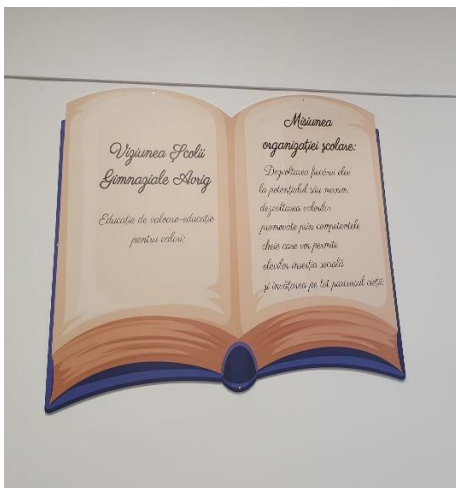 Viziunea Școlii
Gimnaziale Avrig
Educație de valoare-educație
pentru valori!
Misiunea
organizației școlare:
Dezvoltarea fiecărui elev
la potențialul său maxim
dezvoltarea valorilor
promovate prin competentele
cheie care vor permite
elevilor inserția socială
și învățarea pe tot parcursul vieții